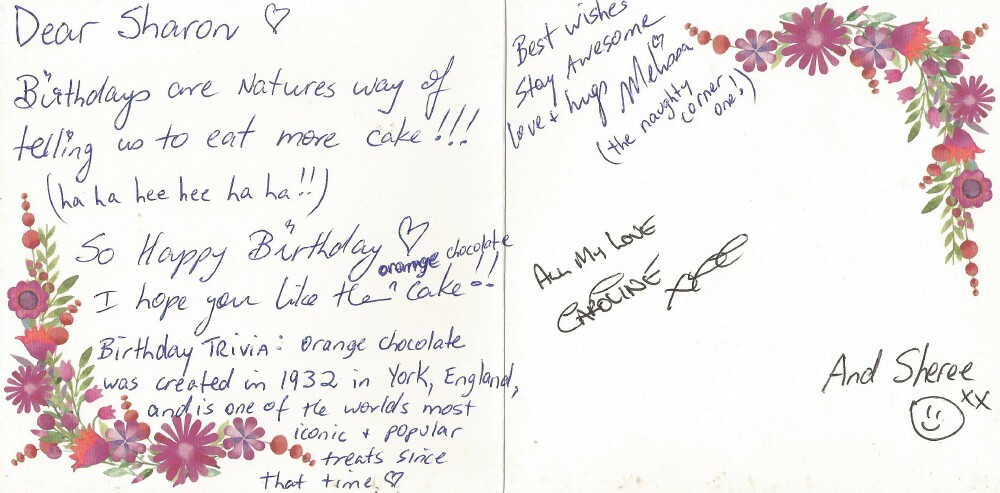 Dear Sharon ♡
Birthdays are Natures way of
telling us to eat more cake!!!
(ha ha hee hee ha ha!!)
So Happy Birthday ♡
orange chocolate
I hope you like the ^ cake!!
Birthday TRIVIA: orange chocolate
was created in 1932 in York, England,
and is one of the worlds most
iconic + popular
treats since
that time. ♡
Best wishes
Stay Awesome
love + hugs Melissa
(the naughty
corner
one!!)
ALL MY LOVE
CAROLINE
And Sheree
xx